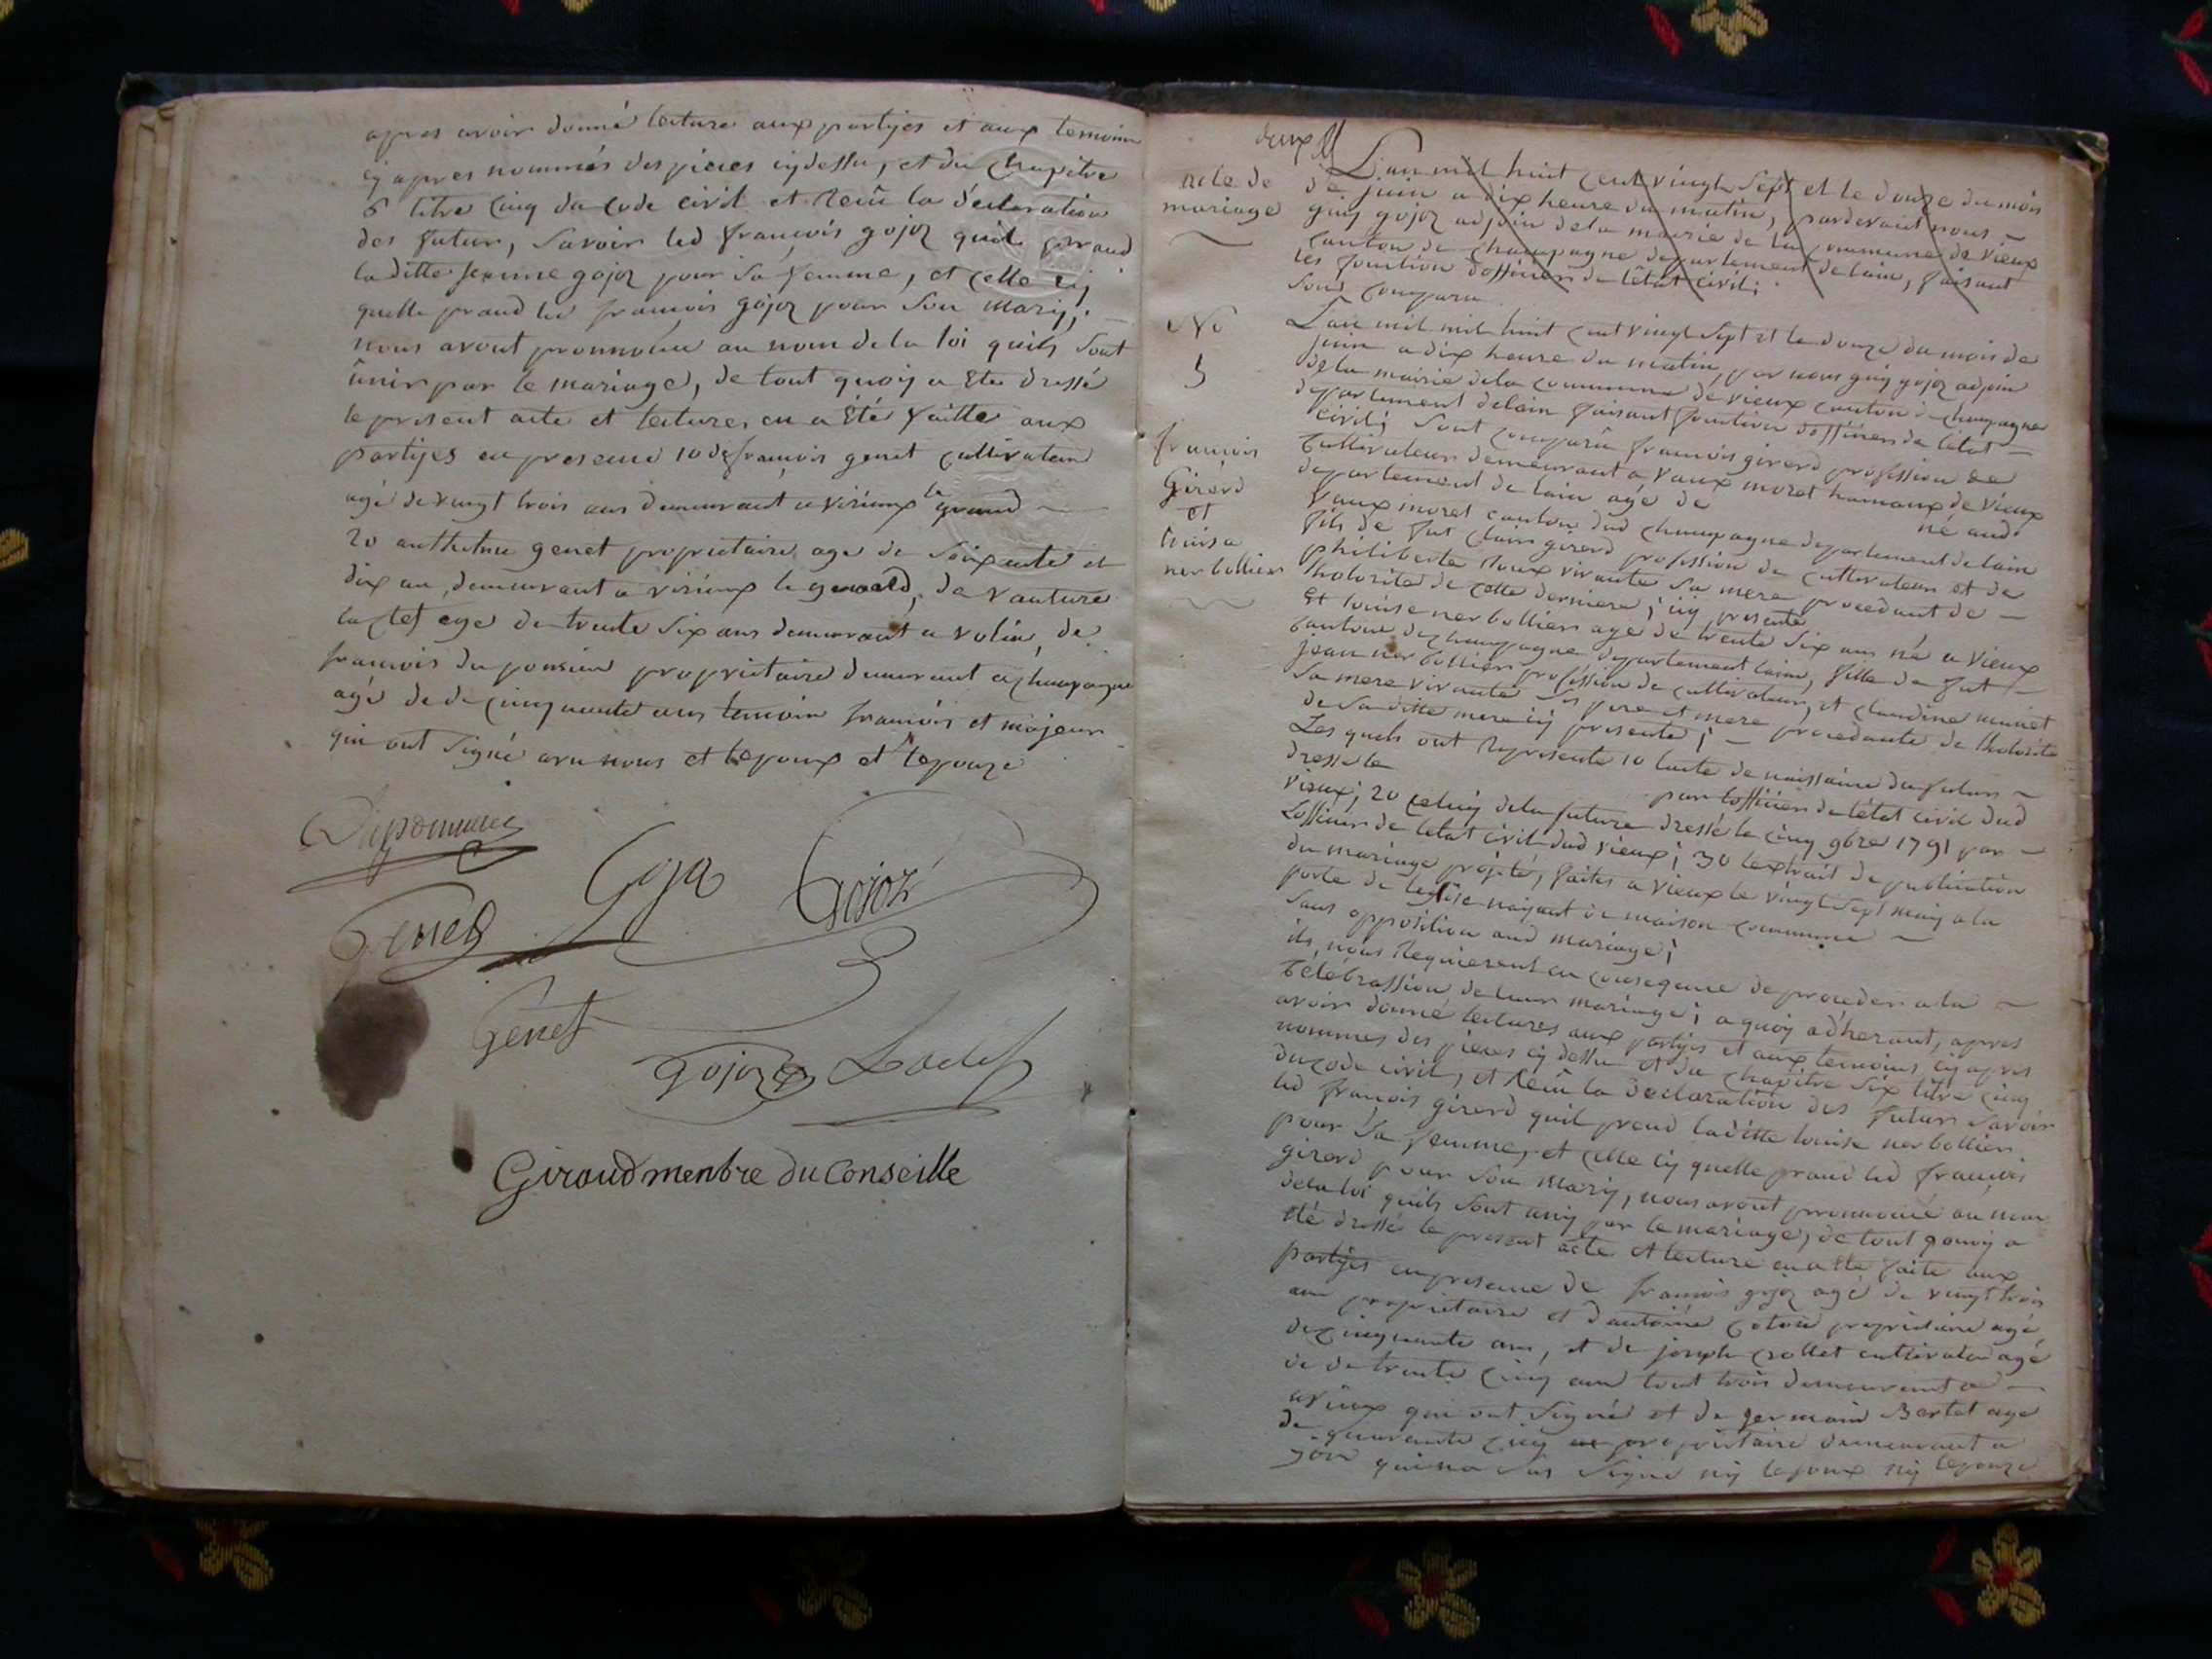 apres avoir donné lecture aux partijes et aux temoins
cy apres nommés des pieces cydessu, et du chapitre
6 titre cinq du code civil et Reçû la déclaration
des futur, Savoir led françois gojoz quil prand
la ditte gojoz pour Sa femme, et celle cij
quelle prand led françois gojoz pour Son marij; —
nous avont prononcé au nom de la loi quils Sont
ûnir par le mariage, de tout quoij a Eté dressé
le present acte et lecture, en a Été faitte aux
partijes en presence 1o de françois genet cultivateur
agé de vingt trois ans demeurant a virieux le grand —
2o genet proprietaire age de Soixante et
dix an, demeurant a virieux le grand, de
age de trente Six ans demeurant a de
françois duponsieu proprietaire demeurant a champagne
agé de de cinquante ans temoin françois et majeur
qui ont Signé avec nous et lepoux et lepouze
Genet Goja Gojoz
Genet
Gojoz
Giroud menbre du Conseille
deux
acte de
mariage
L'an mil huit cent vingt Sept et le douze du mois
de juin a dix heure du matin, pardevant nous —
guij gojoz adjoin de la mairie de la commune de Vieux
canton de champagne departement de lain, faisant
les fonction dofficier de l'état civil;
Sont comparu
No
5
françois
Girerd
et
Louise
nerbollier
L'an mil mil huit cent vingt Sept et le douze du mois de
juin a dix heure du matin, par nous guij gojoz adjoin
de la mairie de la commune de Vieux canton de champagne
departement de lain faisant fonction dofficier de létat —
civil; Sont comparû françois girerd profession de
Cultivateur demeurant a Vaux moret hamaux de Vieux
departement de lain agé de né aud.
Vaux moret canton dud champagne departement de lain
fils de fut clair girerd profession de cultivateur et de
philiberte Roux vivante Sa mere procedant de —
lhotorité de cette derniere; icij presente
Et louise nerbollier agé de trente Six ans né a Vieux
Canton de champagne departement lain, fille de fut —
jean nerbollier profession de cultivateur, et claudine
Sa mere vivante Ses pere et mere procedante de lhotorité
de Saditte mere icij presente; —
Les quels ont Representé 1o lacte de naissance du futur —
dressé le par lofficier de létat civil dud
vieux; 2o celuij de la future dressé le cinq 9bre 1791 par —
Lofficier de létat civil dud vieux; 3o lextrait de publication
du mariage projeté, faites a vieux le vingt Sept maij a la
porte de leglise nayant de maison commune —
Sans opposition aud mariage;
ils nous Requierent en consequence de proceder a la —
Célébrassion de leur mariage; a quoij adherant, apres
avoir donné lectures aux partijes et aux temoins cij apres
nommes des pieces cij dessu et du chapitre Six titre cinq
du code civil, et Reçû la Declaration des futur Savoir
led françois girerd quil prend laditte louise nerbollier
pour Sa femme, et celle cij quelle prand led françois
girerd pour Son marij, nous avont prononcé au nom
de la loi quils Sont unij par le mariage, de tout quoij a
été dressé le present acte et lecture en a été faite aux
partijes en presence de françois gojoz agé de vingt trois
ans proprietaire et dantoine proprietaire agé
de cinquante ans, et de joseph crollet cultivateur agé
de de trente Cinq ans tout trois demeurant a —
a vieux qui ont Signé et de germain Bertet age
de quarante cinq proprietaire demeurant a
qui na Sus Signé nij lepoux nij lepouze